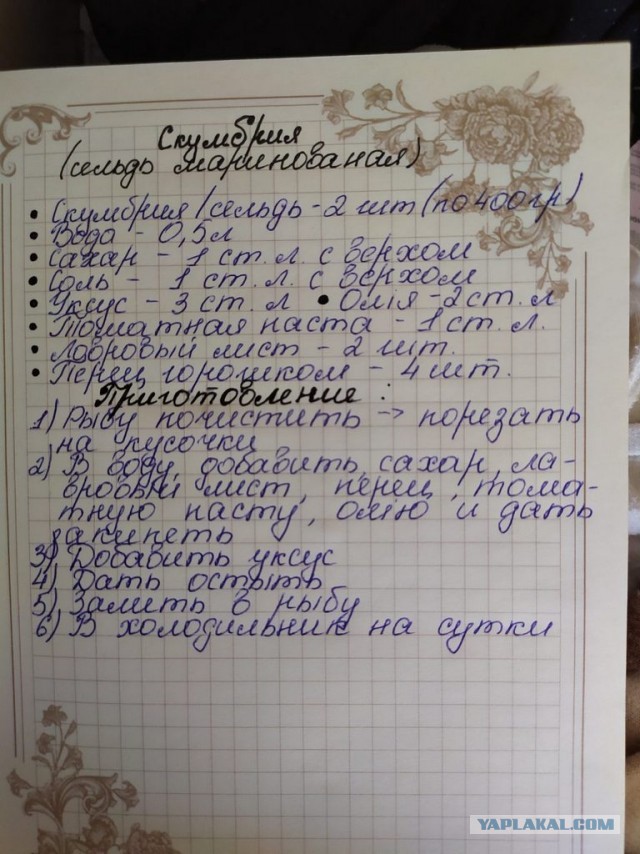 Скумбрия
(сельдь маринованая)
• Скумбрия/сельдь - 2 шт (по 400 гр)
• Вода - 0,5 л
• Сахар - 1 ст. л. с верхом
• Соль - 1 ст. л. с верхом
• Уксус - 3 ст. л • Олія - 2 ст. л
• Томатная паста - 1 ст. л.
• Лавровый лист - 2 шт.
• Перец горошком - 4 шт.
Приготовление :
1) Рыбу почистить -> порезать
на кусочки
2) В воду, добавить сахар, ла-
вровый лист, перец, тома-
тную пасту, олію и дать
закипеть
3) Добавить уксус
4) Дать остыть
5) Залить в рыбу
6) В холодильник на сутки
YAPLAKAL.COM